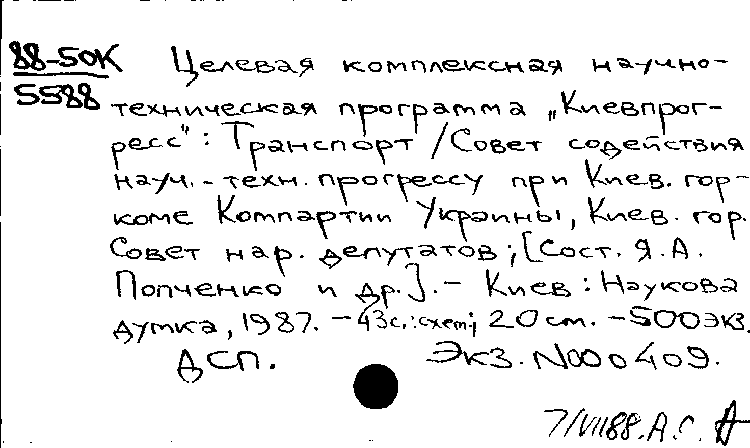 88-50К Целевая комплексная научно-
5588 техническая программа „Киевпрог-
ресс": Транспорт /Совет содействия
науч.-техн. прогрессу при Киев. гор-
коме Компартии Украины, Киев. гор.
Совет нар. депутатов; [Сост. Я.А.
Попченко и др.]. - Киев: Наукова
думка, 1987. - 43с.:схем; 20 cm. - 500 экз.
ДСП. Экз. N000409.
7/VII88. А.С.